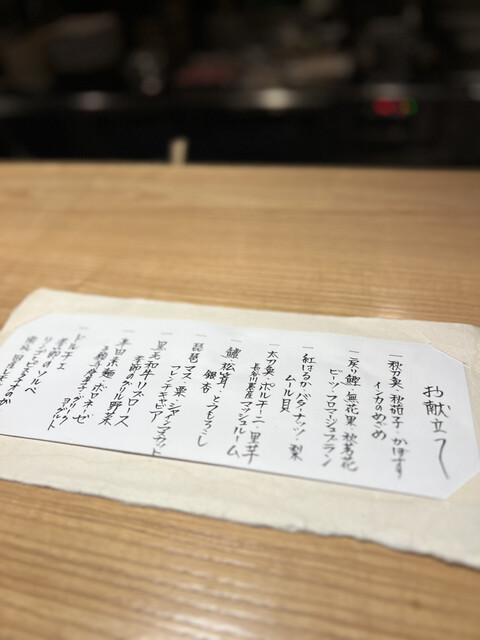 お献立て
一 秋刀魚・秋茄子・かぼす
インカのめざめ
一 戻り鰹・無花果・秋茗荷
ビーツ・フロマージュブラン
一 紅はるか・バターナッツ・梨
ムール貝
一 太刀魚・ポルチーニ・里芋
長谷川農産マッシュルーム
一 鱧・松茸・とうもろこし
銀杏
一 琵琶マス・栗・シャインマスカット
フレンチキャビア
一 黒毛和牛リブロース
季節のグリル野菜
一 半田素麺・ボロネーゼ
一 ドルチェ
季節のソルベ